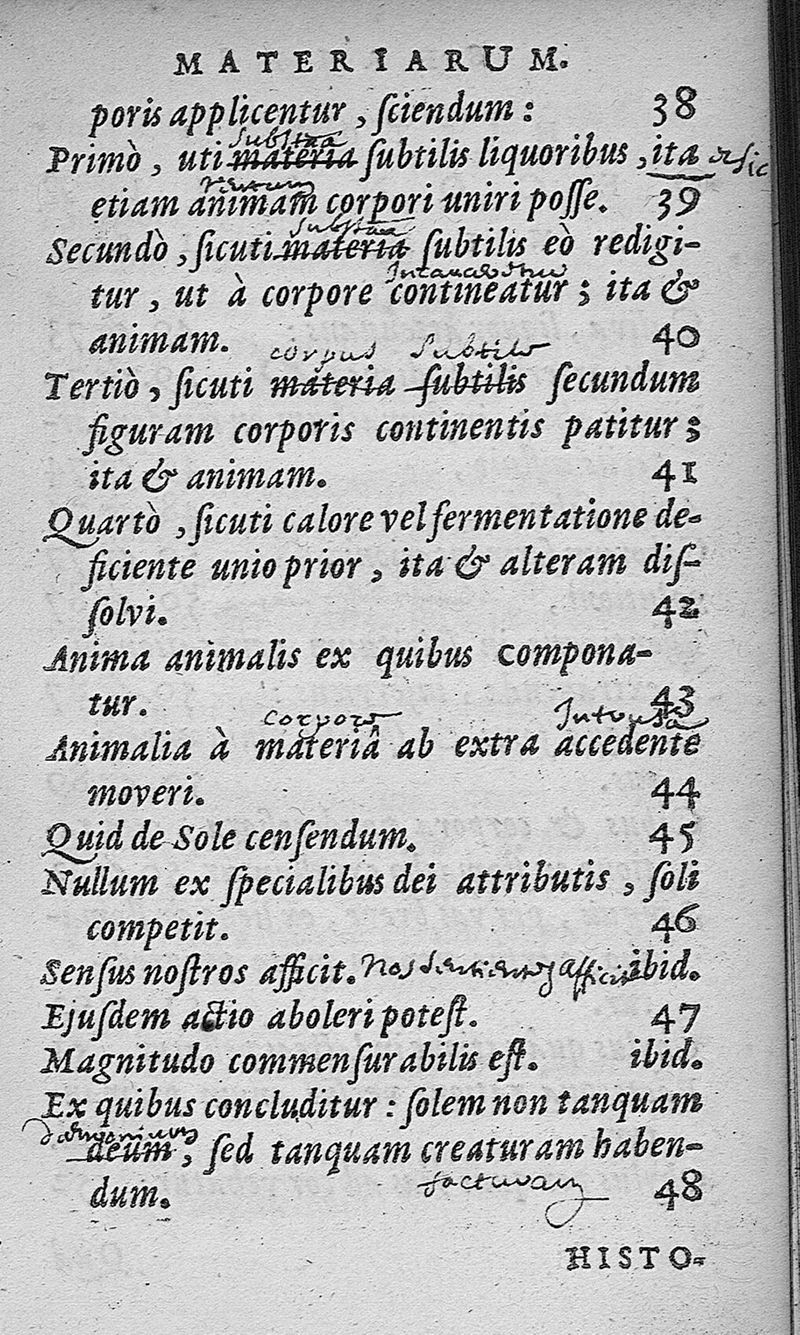 MATERIARUM.
poris applicentur, ſciendum: 38
ſubſtãa
Primò, uti materia ſubtilis liquoribus, ita & ſic
etiam animam corpori uniri poſſe. 39
ſubſtãa
Secundò, ſicuti materia ſubtilis eò redigi-
tur, ut à corpore contineatur; ita &
animam. 40
corpus Subtile
Tertiò, ſicuti materia ſubtilis ſecundum
figuram corporis continentis patitur;
ita & animam. 41
Quartò, ſicuti calore vel fermentatione de-
ficiente unio prior, ita & alteram diſ-
ſolvi. 42
Anima animalis ex quibus compona-
tur. 43
corpore
Animalia à materiâ ab extra accedente
moveri. 44
Quid de Sole cenſendum. 45
Nullum ex ſpecialibus dei attributis, ſoli
competit. 46
Senſus noſtros afficit. Nos ibid.
Ejuſdem actio aboleri poteſt. 47
Magnitudo commenſurabilis eſt. ibid.
Ex quibus concluditur: ſolem non tanquam
deum, ſed tanquam creaturam haben-
dum. facturam 48
HISTO-